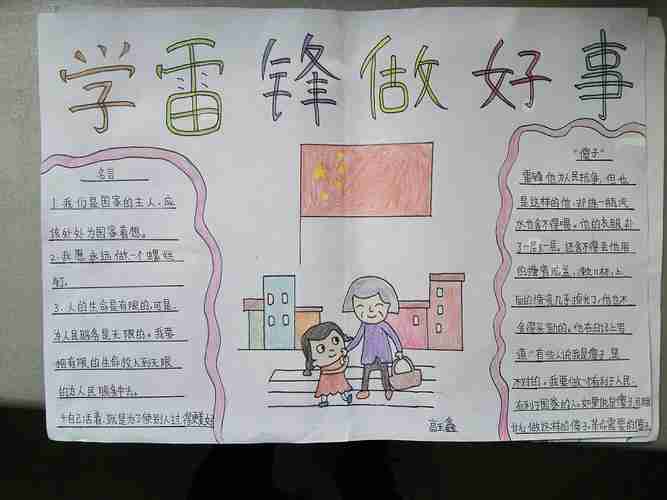 学雷锋做好事
名言
1.我们是国家的主人，应
该处处为国家着想。
2.我愿永远做一个螺丝
钉。
3.人的生命是有限的，可是
为人民服务是无限的。我要
把有限的生命投入到无限
的为人民服务中去。
4自己活着，就是为了使别人过得更美好
"傻子"
雷锋他为人民
是这样的他，却连一瓶汽
水也舍不得喝。他的衣服补
了一层又一层，还舍不得丢他用
他也不
舍得买新的。他在日记上写
道"有些人说我是傻子是
不对的。我要做一个有利于人民
有利于国家的人。如果说是傻子
甘心做这样的傻子，革命需要的傻子